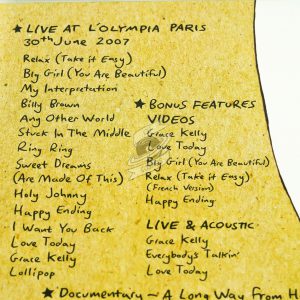 ★ LIVE AT L'OLYMPIA PARIS
30th JUNE 2007
Relax (Take it Easy)
Big Girl (You Are Beautiful)
My Interpretation
Billy Brown
Any Other World
Stuck In The Middle
Ring Ring
Sweet Dreams
(Are Made Of This)
Holy Johnny
Happy Ending
I Want You Back
Love Today
Grace Kelly
Lollipop
★ BONUS FEATURES
VIDEOS
Grace Kelly
Love Today
Big Girl (You Are Beautiful)
Relax (Take it Easy)
(French Version)
Happy Ending
LIVE & ACOUSTIC
Grace Kelly
Everybody's Talkin'
Love Today
★ Documentary ~ A Long Way From H